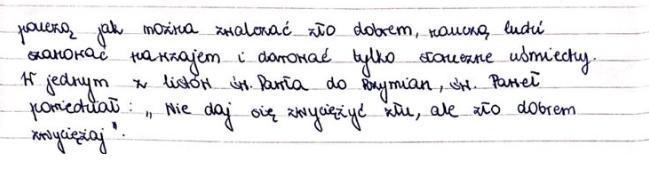 pouczą jak można zwalczać zło dobrem, nauczą ludzi
szanować nawzajem i darować tylko słoneczne uśmiechy.
W jednym z listów św. Pawła do Rzymian, św. Paweł
powiedział: „Nie daj się zwyciężyć złu, ale zło dobrem
zwyciężaj".